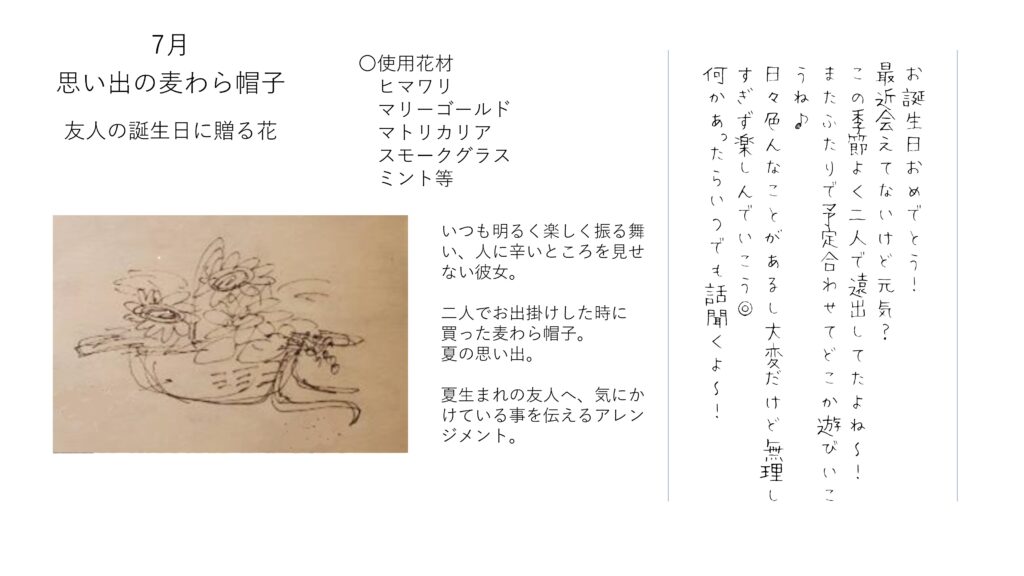 7月
思い出の麦わら帽子
友人の誕生日に贈る花
〇使用花材
ヒマワリ
マリーゴールド
マトリカリア
スモークグラス
ミント等
いつも明るく楽しく振る舞
い、人に辛いところを見せ
ない彼女。
二人でお出掛けした時に
買った麦わら帽子。
夏の思い出。
夏生まれの友人へ、気にか
けている事を伝えるアレン
ジメント。
お誕生日おめでとう！
最近会えてないけど元気？
この季節よく二人で遠出してたよね～！
またふたりで予定合わせてどこか遊びいこ
うね♪
日々色んなことがあるし大変だけど無理し
すぎず楽しんでいこう◎
何かあったらいつでも話聞くよ～！